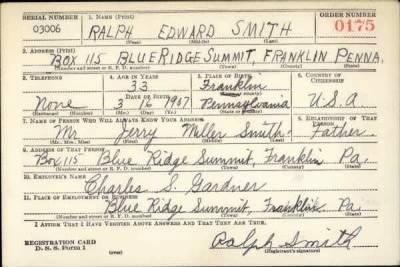 SERIAL NUMBER 1. NAME (Print) ORDER NUMBER
03006 RALPH EDWARD SMITH 0175
(First) (Middle) (Last)
2. ADDRESS (Print)
BOX 115 BLUE RIDGE SUMMIT, FRANKLIN PENNA.
(Number and street or R. F. D. number) (Town) (County) (State)
3. TELEPHONE 4. AGE IN YEARS 5. PLACE OF BIRTH 6. COUNTRY OF CITIZENSHIP
33 Franklin
DATE OF BIRTH (Town or county)
None 3 16 1907 Pennsylvania U.S.A
(Exchange) (No.) (Mo.) (Day) (Yr.) (State or country)
7. NAME OF PERSON WHO WILL ALWAYS KNOW YOUR ADDRESS 8. RELATIONSHIP OF THAT PERSON
Mr. Jerry Miller Smith Father
(Mr., Mrs., Miss) (First) (Middle) (Last)
9. ADDRESS OF THAT PERSON
Box 115 Blue Ridge Summit, Franklin Pa.
(Number and street or R. F. D. number) (Town) (County) (State)
10. EMPLOYER'S NAME
Charles S. Gardner
11. PLACE OF EMPLOYMENT OR BUSINESS
Blue Ridge Summit, Franklin Pa.
(Number and street or R. F. D. number) (Town) (County) (State)
I AFFIRM THAT I HAVE VERIFIED ABOVE ANSWERS AND THAT THEY ARE TRUE.
REGISTRATION CARD
D. S. S. Form 1 Ralph Smith
(Registrant's signature)